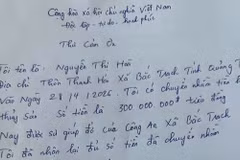 Cộng hòa xã hội chủ nghĩa Việt Nam
Độc lập - tự do - hạnh phúc
Thư Cảm Ơn
Tôi tên là: Nguyễn Thị Hải
Địa chỉ Thôn Thanh Hà Xã Bắc Trạch Tỉnh Quảng Tr
Vào Ngày 28/4/2026. Tôi có chuyển nhầm tiền
Số tiền là 300.000.000đ triệu đồng
Nay được sự giúp đỡ của Công An Xã Bắc Trạch
Tôi đã nhận lại đủ số tiền đã chuyển nhầm